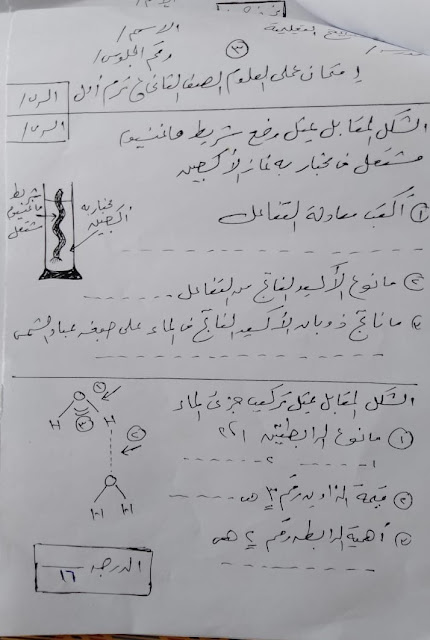 التعليمية
الاسم/
رقم الجلوس/
٣
إمتحان على العلوم الصف الثاني ع ترم أول
الدرس/
الدرس/
الشكل المقابل يمثل وضع شريط ماغنسيوم
مشتعل في مخبار به غاز الأكسجين
شريط ماغنسيوم مشتعل
مخبار به أكسجين
١ أكتب معادلة التفاعل
٢ ما نوع الأكسيد الناتج من التفاعل
٣ ما ناتج ذوبان الأكسيد الناتج في الماء على صبغة عباد الشمس
الشكل المقابل يمثل تركيب جزئ الماء
١ ما نوع الرابطتين ١، ٢
١- ٢-
٢ قيمة الزاوية رقم ٣ هى
٣ أهمية الرابطه رقم ٢ هى
١
O
H H
٣
٢
O
H H
الدرجه
١٦